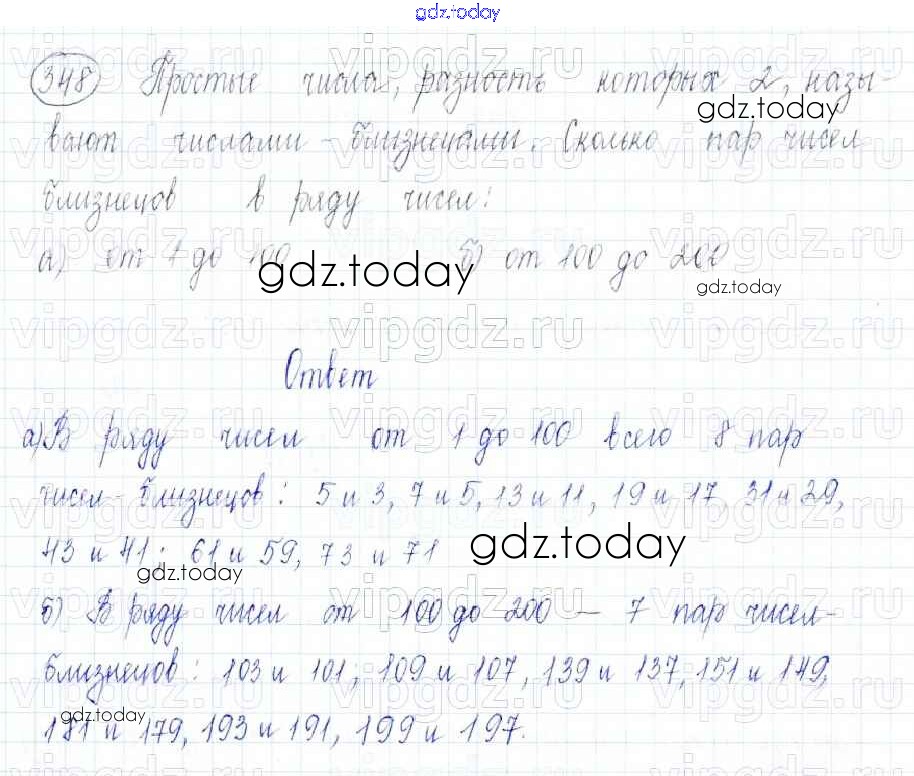 gdz.today
348 Простые числа, разность которых 2, назы-
gdz.today
вают числами-близнецами. Сколько пар чисел
близнецов в ряду чисел:
а) от 1 до 100 б) от 100 до 200
gdz.today
gdz.today
vipgdz.ru vipgdz.ru vipgdz.ru
Ответ
а) В ряду чисел от 1 до 100 всего 8 пар
чисел-близнецов: 5 и 3, 7 и 5, 13 и 11, 19 и 17, 31 и 29,
43 и 41; 61 и 59, 73 и 71
gdz.today
gdz.today
б) В ряду чисел от 100 до 200 – 7 пар чисел-
близнецов: 103 и 101; 109 и 107, 139 и 137, 151 и 149,
gdz.today
181 и 179, 193 и 191, 199 и 197.